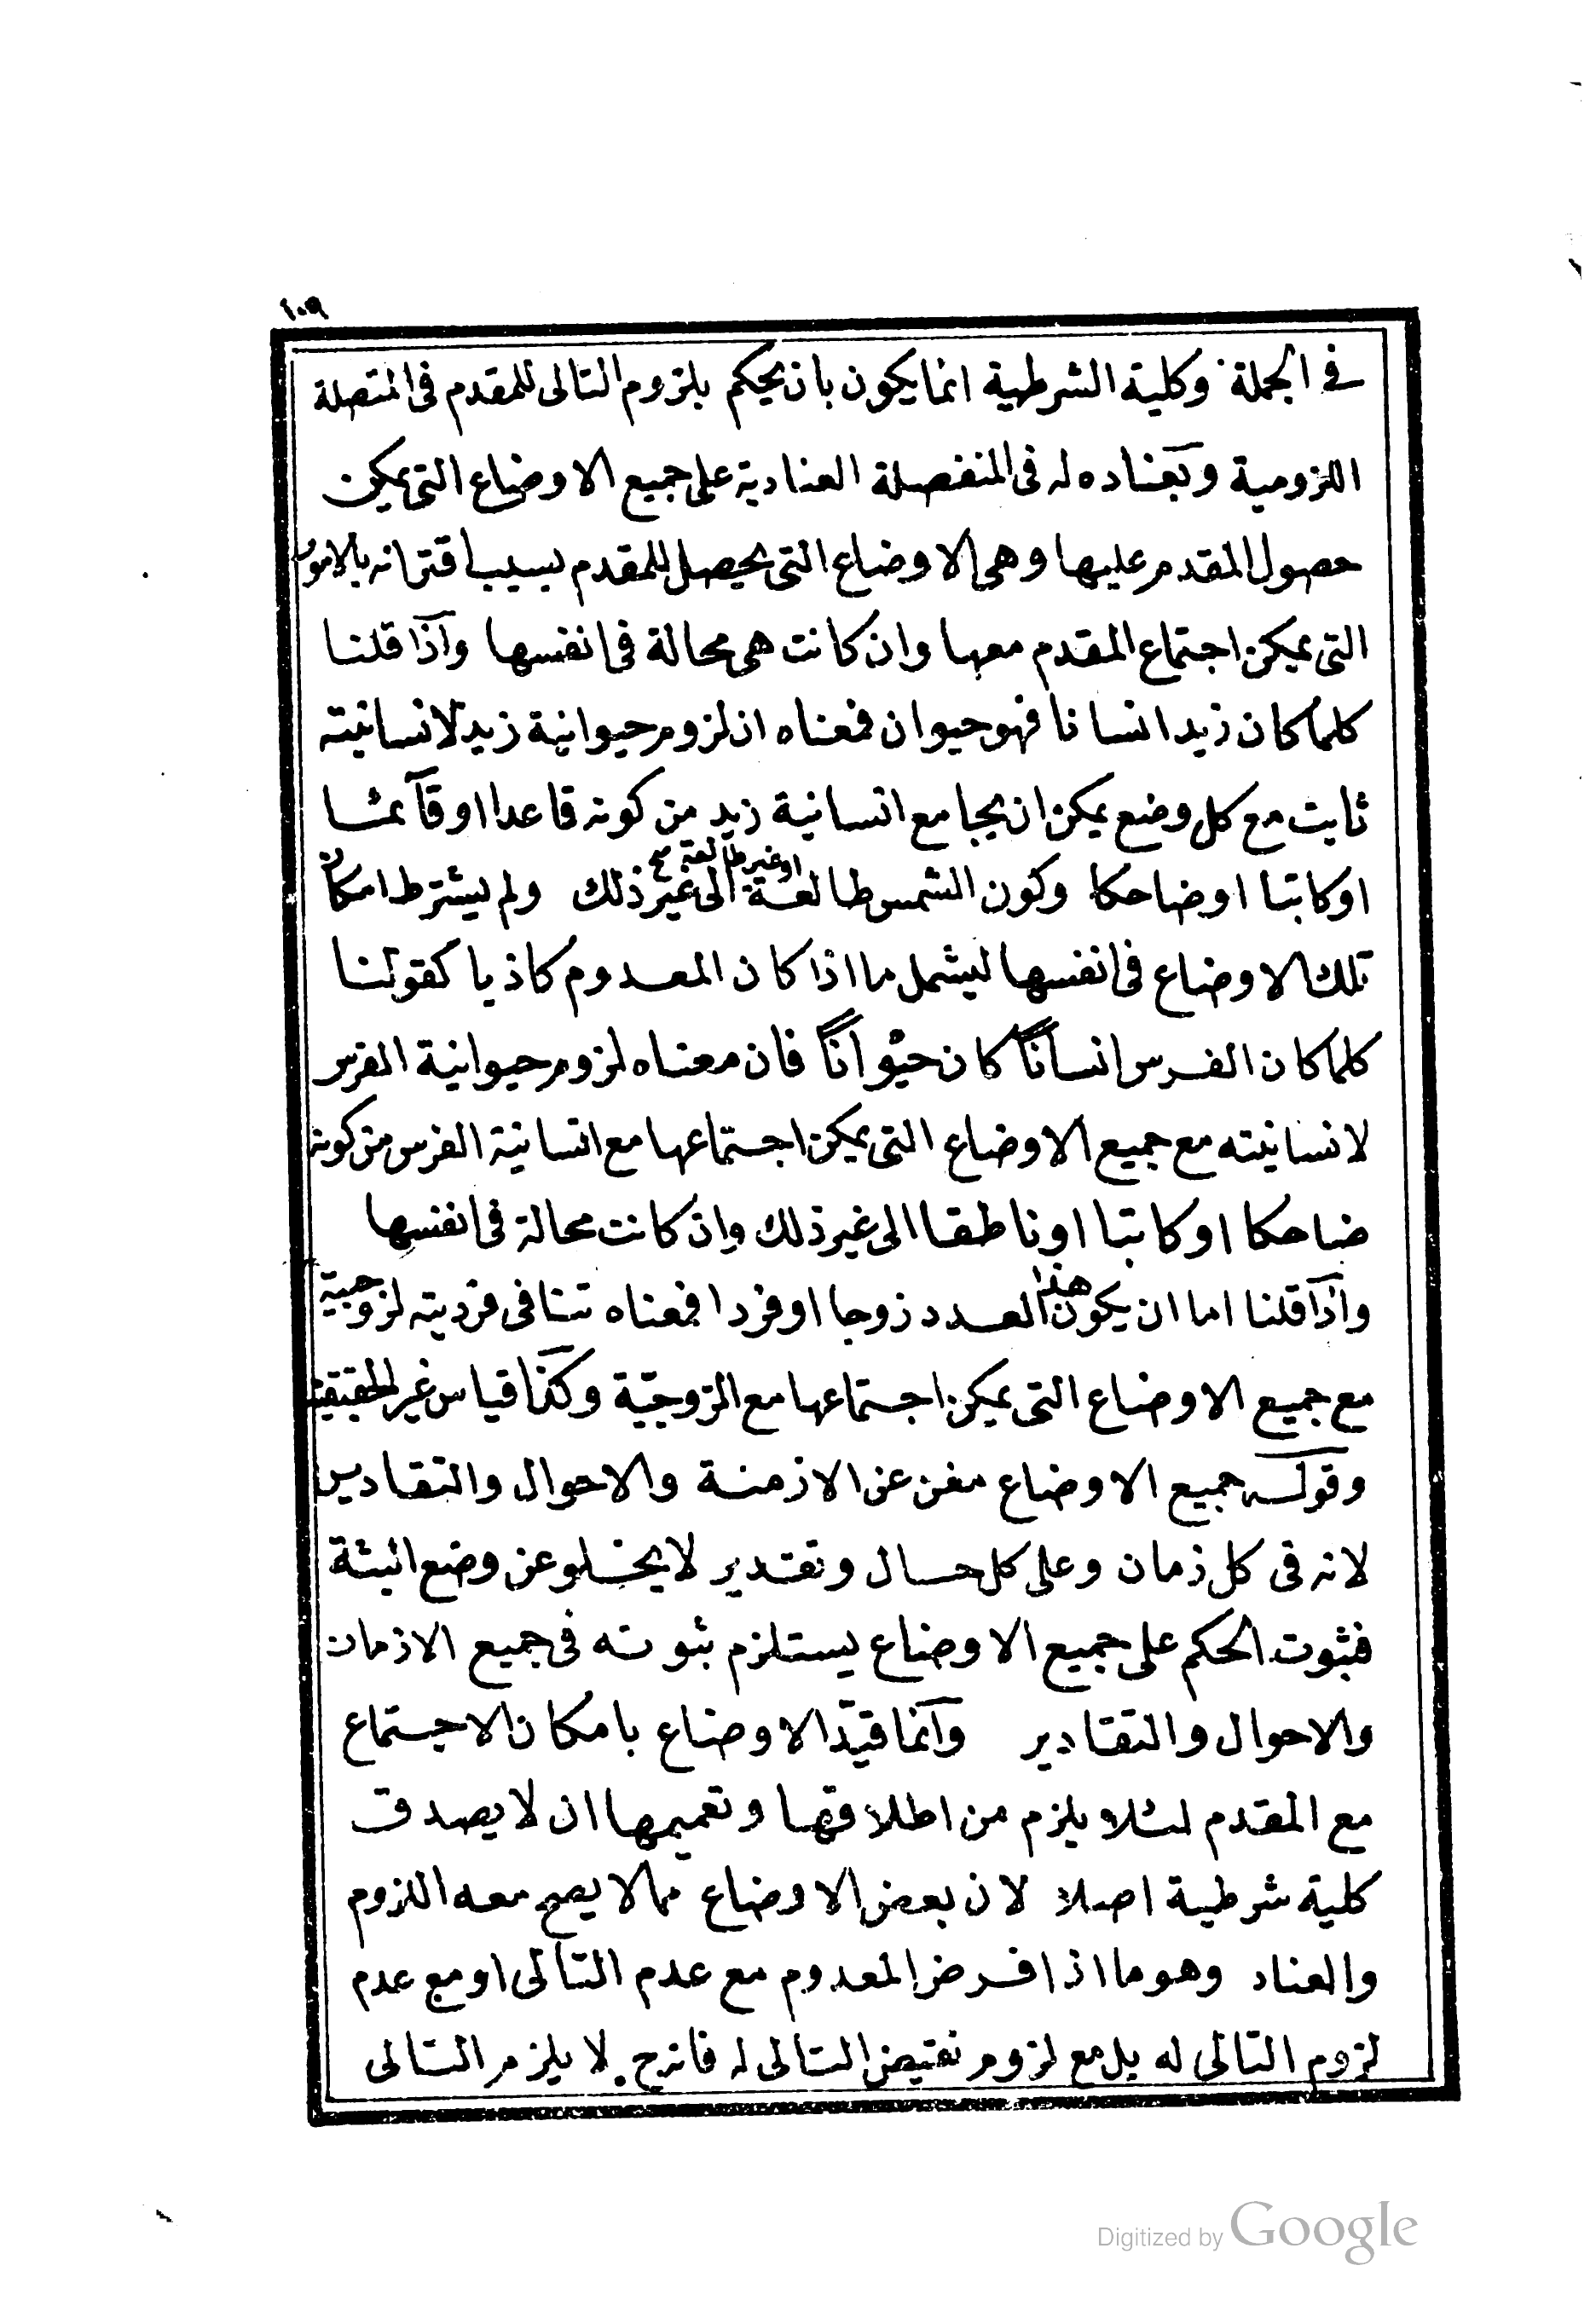 ١٠٩
في الجملة وكلية الشرطية انما يكون بان يحكم بلزوم التالى للمقدم فى المتصلة
اللزومية وبعناده له فى المنفصلة العنادية على جميع الاوضاع التى يمكن
حصول المقدم عليها وهى الاوضاع التى يحصل للمقدم بسبب اقترانه بالامور
التى يمكن اجتماع المقدم معها وان كانت هى محالة فى انفسها واذا قلنا
كلما كان زيد انسانا فهو حيوان فمعناه ان لزوم حيوانية زيد لانسانيته
ثابت مع كل وضع يمكن ان يجامع انسانية زيد من كونه قاعدا او قآئما
اوكاتبا اوضاحكا وكون الشمس طالعة اوغير طالعة صح الى غير ذلك ولم يشترط امكان
تلك الاوضاع فى انفسها ليشمل ما اذا كان المعدوم كاذبا كقولنا
كلما كان الفرس انسانًا كان حيوانًا فان معناه لزوم حيوانية الفرس
لانسانيته مع جميع الاوضاع التى يمكن اجتماعها مع انسانية الفرس من كونه
ضاحكا اوكاتبا اوناطقا الى غير ذلك وان كانت محالة فى انفسها
واذا قلنا اما ان يكون هذا العدد زوجا اوفردا فمعناه تنافى فرديته لزوجيته
مع جميع الاوضاع التى يمكن اجتماعها مع الزوجيّة وكذا قياس غير الحقيقية
وقوله جميع الاوضاع مغن عن الازمنة والاحوال والتقادير
لانه فى كل زمان وعلى كل حال وتقدير لايخلو عن وضع البتة
فثبوت الحكم على جميع الاوضاع يستلزم ثبوته فى جميع الازمان
والاحوال والتقادير وآنما قيّد الاوضاع بامكان الاجتماع
مع المقدم لئلا يلزم من اطلاقها وتعميمها ان لا يصدق
كلية شرطية اصلا لان بعض الاوضاع مما لا يصح معه اللزوم
والعناد وهو ما اذا فرض المعدوم مع عدم التالى او مع عدم
لزوم التالى له بل مع لزوم نقيض التالى له فانه ح لا يلزم التالى
Digitized by Google